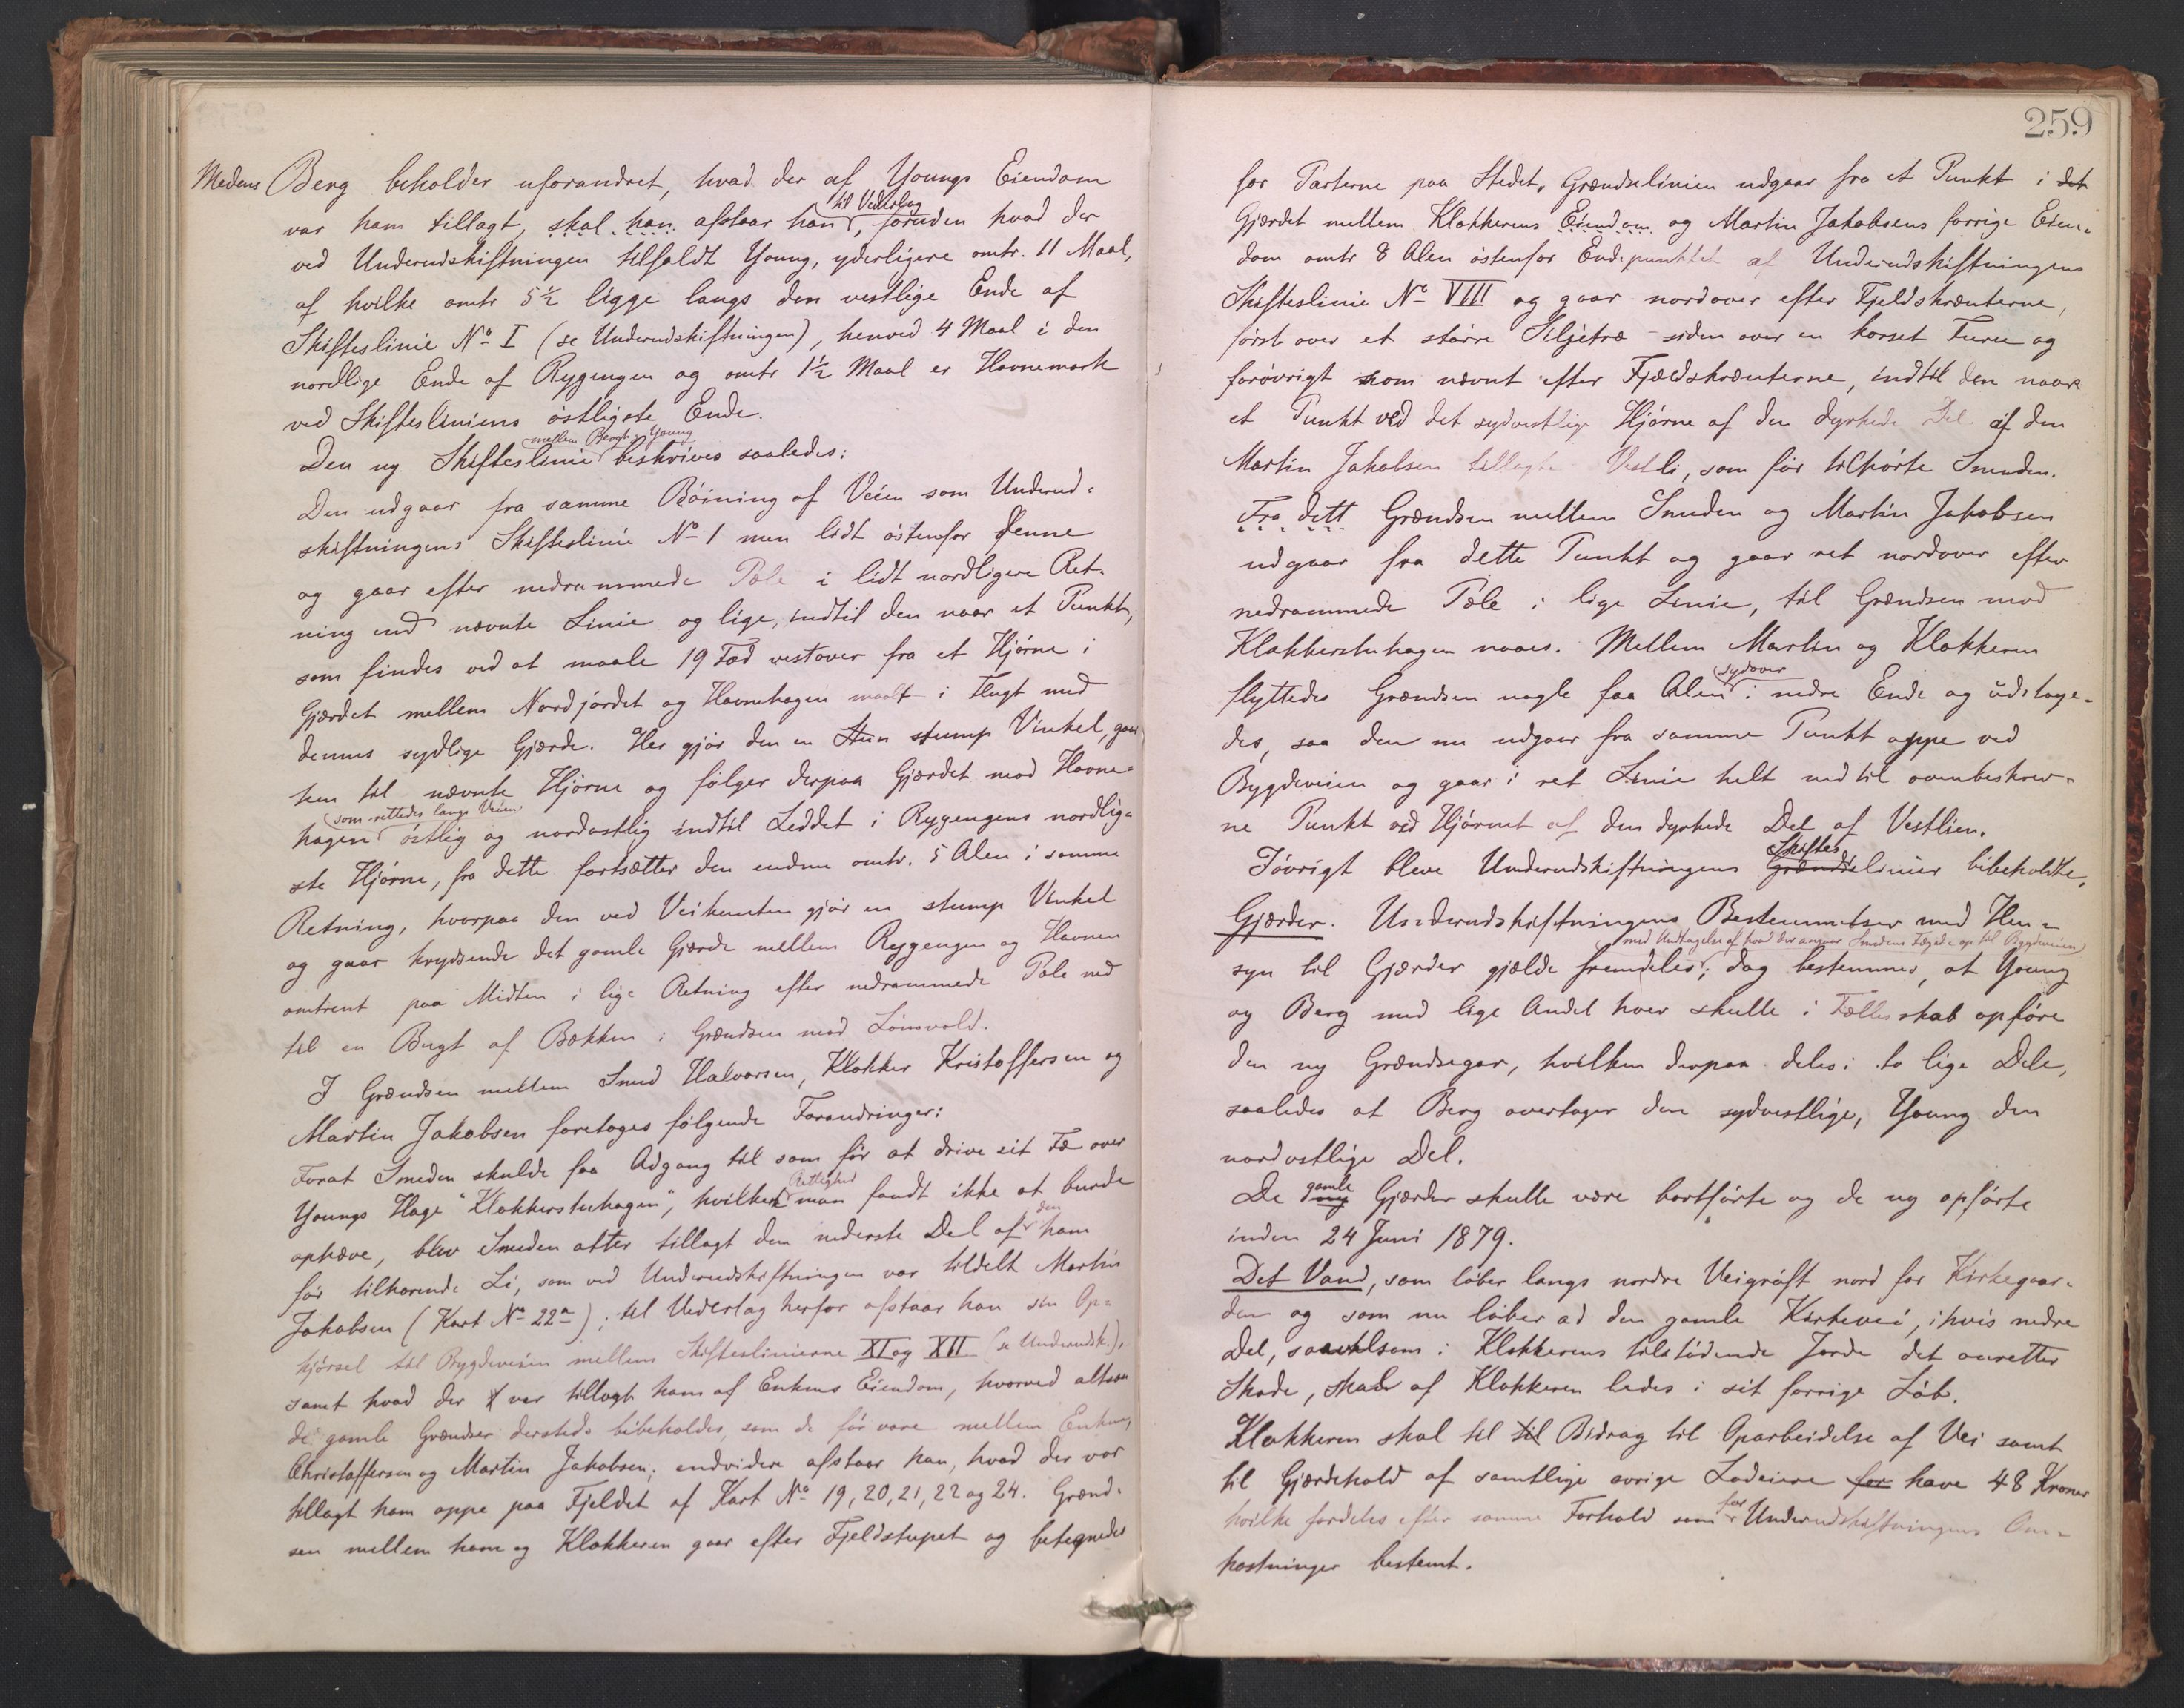 Medens Berg beholder uforandret, hvad der af Youngs Eiendom
var ham tillagt, skal han afstaar han til Vederlag, foruden hvad der
ved Underudskiftningen tilfaldt Young, yderligere omtr. 11 Maal,
af hvilke omtr 5½ ligge langs den vestlige Ende af
Skifteslinie No I (se Underudskiftningen), henved 4 Maal i den
nordlige Ende af Rygengen og omtr 1½ Maal er Havnemark
ved Skiftesliniens östligste Ende.
Den ny Skifteslinie mellem Berg & Young beskrives saaledes:
Den udgaar fra samme Böining af Veien som Underud-
skiftningens Skifteslinie No 1 men lidt östenfor denne
og gaar efter nedrammede Pæle i lidt nordligere Ret-
ning end nævnte Linie og lige, indtil den naar et Punkt,
som findes ved at maale 19 Fod vestover fra et Hjörne i
Gjærdet mellem Nordjordet og Havnehagen maalt i Flugt med
dennes sydlige Gjærde. Her gjör den en Stun stump Vinkel, gaar
hen til nævnte Hjörne og fölger derpaa Gjærdet mod Havne-
hagen som rettedes langs Veien östlig og nordostlig indtil Leddet i Rygengens nordlig-
ste Hjörne, fra dette fortsætter den endnu omtr. 5 Alen i samme
Retning, hvorpaa den ved Veikanten gjör en stump Vinkel
og gaar krydsende det gamle Gjærde mellem Rygengen og Havnen
omtrent paa Midten i lige Retning efter nedrammede Pæle ned
til en Bugt af Bækken i Grændsen mod Lönvold.
I Grændsen mellem Smed Halvorsen, Klokker Kristoffersen og
Martin Jakobsen foretoges fölgende Forandringer:
Forat Smeden skulde faa Adgang til som för at drive sit Fæ over
Youngs Hage "Klokkerstuhagen", hvilken Rettighed man fandt ikke at burde
ophæve, blev Smeden atter tillagt den nederste Del af den ham
för tilhörende Li, som ved Underudskiftningen var tildelt Martin
Jakobsen (Kart No 22a); til Vederlag herfor afstaar han sin Op-
kjörsel til Bygdeveien mellem Skifteslinierne XI og XII (se Underudsk.),
samt hvad der var tillagt ham af Enkens Eiendom, hvorved altsaa
de gamle Grændser dersteds bibeholdes, som de för vare mellem Enken,
Christoffersen og Martin Jakobsen; endvidere afstaar han, hvad der var
tillagt ham oppe paa Fjeldet af Kart No 19, 20, 21, 22 og 24. Grænd-
sen mellem ham og Klokkeren gaar efter Fjeldstupet og betegnedes
259
for Parterne paa Stedet. Grændselinien udgaar fra et Punkt i det
Gjærdet mellem Klokkerens Eiendom og Martin Jakobsens forrige Eien-
dom omtr 8 Alen östenfor Endepunktet af Underudskiftningens
Skifteslinie No VIII og gaar nordover efter Fjeldskrænterne,
först over et större Siljetræ - siden over en korset Furu og
foróvrigt som nævnt efter Fjeldskrænterne, indtil den naar
et Punkt ved det sydvestlige Hjörne af den dyrkede Del af den
Martin Jakobsen tillagte Vestli, som för tilhörte Smeden.
Fra dett Grændsen mellem Smeden og Martin Jakobsen
udgaar fra dette Punkt og gaar ret nordover efter
nedrammede Pæle i lige Linie, til Grændsen mod
Klokkerstuhagen naaes. Mellem Martin og Klokkeren
flyttedes Grændsen nogle faa Alen sydover i nedre Ende og udstage-
des, saa den nu udgaar fra samme Punkt oppe ved
Bygdeveien og gaar i ret Linie helt ned til ovenbeskrev-
ne Punkt ved Hjörnet af den dyrkede Del af Vestlien.
Iövrigt bleve Underudskiftningens Grændse Skifteslinier bibeholdte.
Gjærder. Underudskiftningens Bestemmelser med Hen-
syn til Gjærder gjælde fremdeles med Undtagelse af hvad der angaar Smedens Fægade op til Bygdeveien; dog bestemmes, at Young
og Berg med lige Andel hver skulle i Fællesskab opföre
den ny Grændsegar, hvilken derpaa deles i to lige Dele,
saaledes at Berg overtager den sydvestlige, Young den
nordostlige Del.
De ny gamle Gjærder skulle være bortförte og de ny opförte
inden 24 Juni 1879.
Det Vand, som löber langs nordre Veigröft nord for Kirkegaar-
den og som nu löber ad den gamle Kirkevei, i hvis nedre
Del, saavelsom i Klokkerens tilstödende Jorde det anretter
Skade, skal af Klokkeren ledes i sit forrige Löb.
Klokkeren skal til til Bidrag til Oparbeidelse af Vei samt
til Gjærdehold af samtlige övrige Lodeiere for have 48 Kroner
hvilke fordeles efter samme Forhold som for Underudskiftningens Om-
kostninger bestemt.